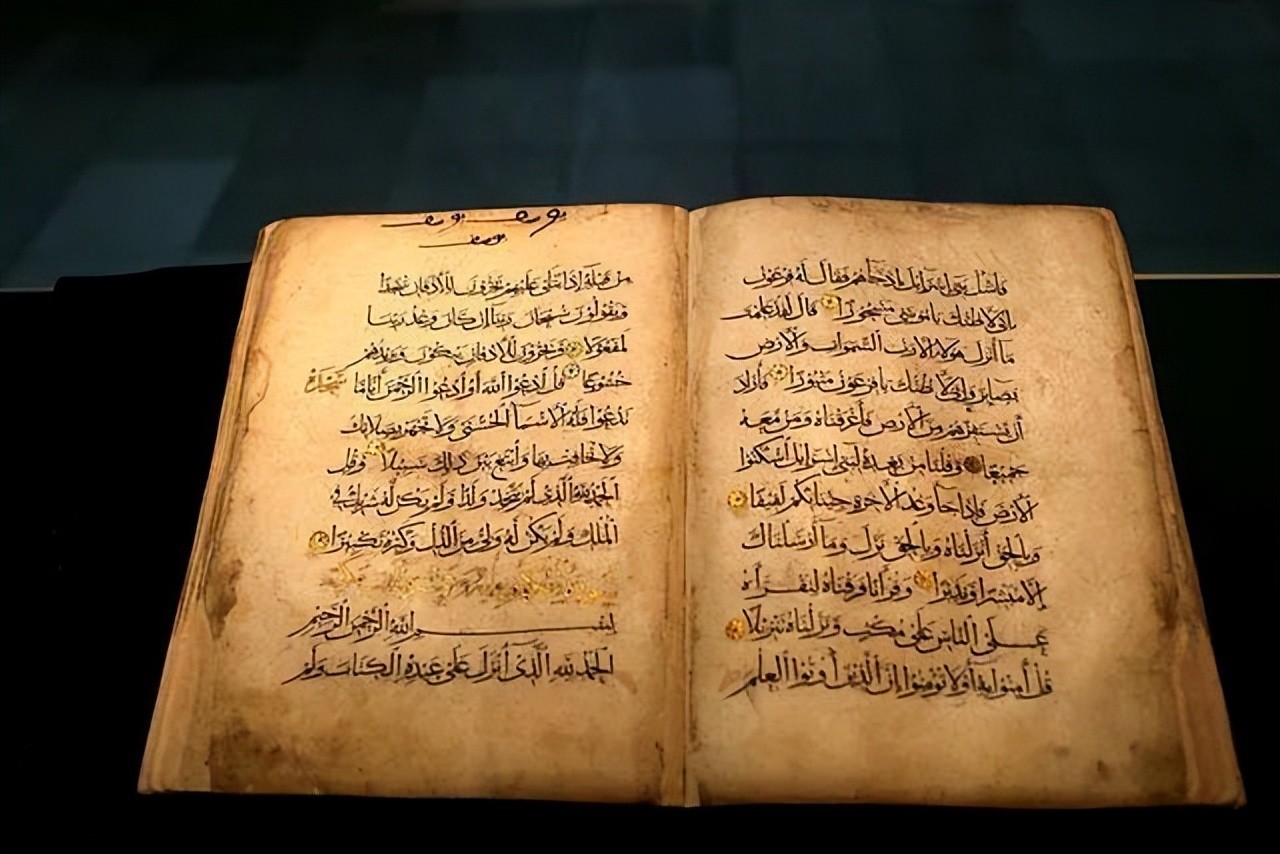 فاسئل بنى اسرائل اذ جاهم فقال له فرعون
انى لاظنك ياموسى مسحورا قال لقد علمت
ما أنزل هولاء الا رب السموات والأرض
بصائر وانى لاظنك يافرعون مثبورا فأراد
أن يستفزهم من الأرض فأغرقناه ومن معه
جميعا وقلنا من بعده لبنى اسرائل اسكنوا
الأرض فإذا جا وعد الأخرة جئنابكم لفيفا
وبالحق أنزلناه وبالحق نزل وما أرسلناك
إلا مبشرا ونذيرا وقرأنا فرقناه لتقرأه
على الناس على مكث ونزلناه تنزيلا
قل أمنوا به أولا تومنوا إن الذين أوتوا العلم
من قبله إذا يتلى عليهم يخرون للاذقان سجدا
ويقولون سبحان ربنا إن كان وعد ربنا
لمفعولا ويخرون للاذقان يبكون ويزيدهم
خشوعا قل ادعوا الله أو ادعوا الرحمن أياما
تدعوا فله الاسماء الحسنى ولا تجهر بصلاتك
ولا تخافت بها وابتغ بين ذلك سبيلا وقل
الحمد لله الذى لم يتخذ ولدا ولم يكن له شريك فى
الملك ولم يكن له ولى من الذل وكبره تكبيرا
بسم الله الرحمن الرحيم
الحمد لله الذى أنزل على عبده الكتاب ولم